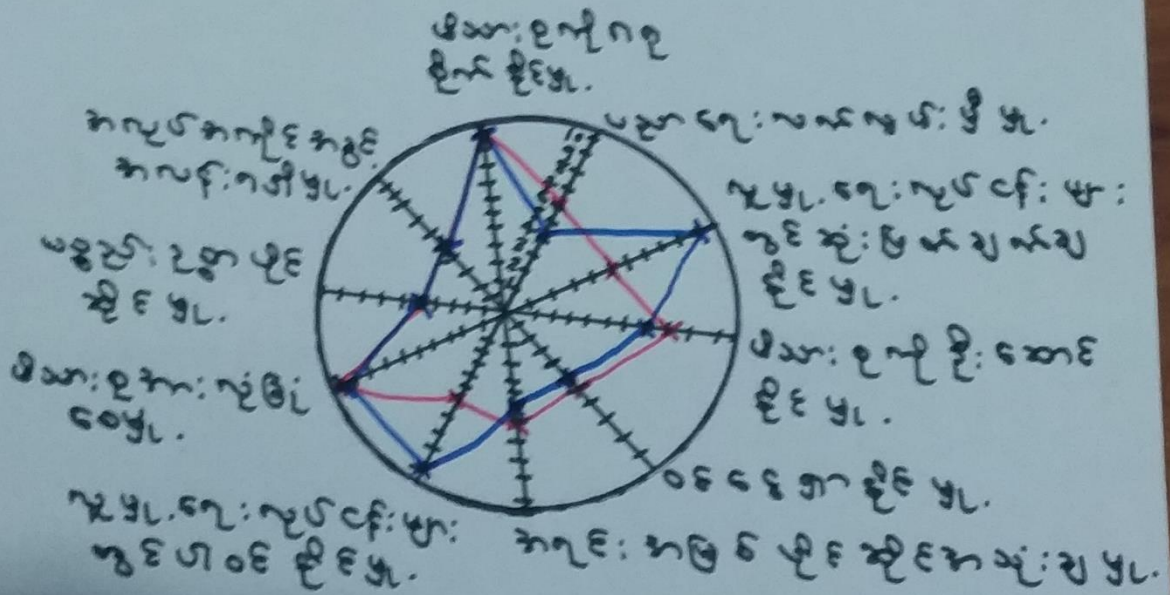 မိသားစုကိုဂရု
စိုက်နိုင်မှု.
ပညာရေးလက်လှမ်းမှီမှု.
လူမှုရေးလုပ်ငန်းများ
တွင်ဆုံးဖြတ်ချက်ချ
နိုင်မှု.
မိသားစုကိုဦးဆောင်
နိုင်မှု.
ဝင်ငွေရှာနိုင်မှု.
အရင်းအမြစ်ပိုင်ဆိုင်အသုံးချမှု.
လူမှုရေးလုပ်ငန်းများ
တွင်ပါဝင်နိုင်မှု.
မိသားစုအားလုံခြုံ
စေမှု.
ပစ္စည်းဥစ္စာပိုင်
ဆိုင်မှု.
အလုပ်အကိုင်အခွင့်
အလမ်းရရှိမှု.